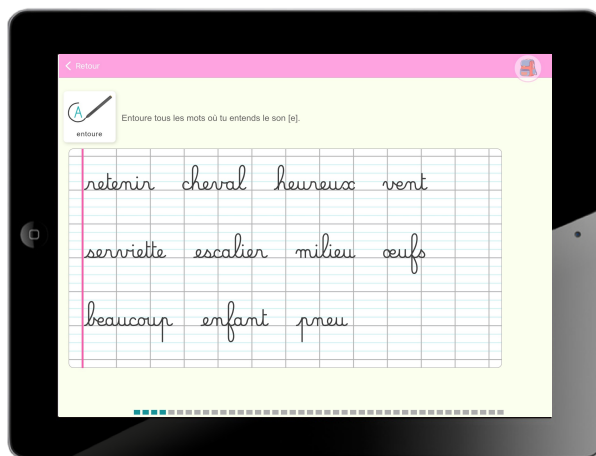 Retour
A
entoure
Entoure tous les mots où tu entends le son [e].
retenir cheval heureux vent
serviette escalier milieu œufs
beaucoup enfant pneu